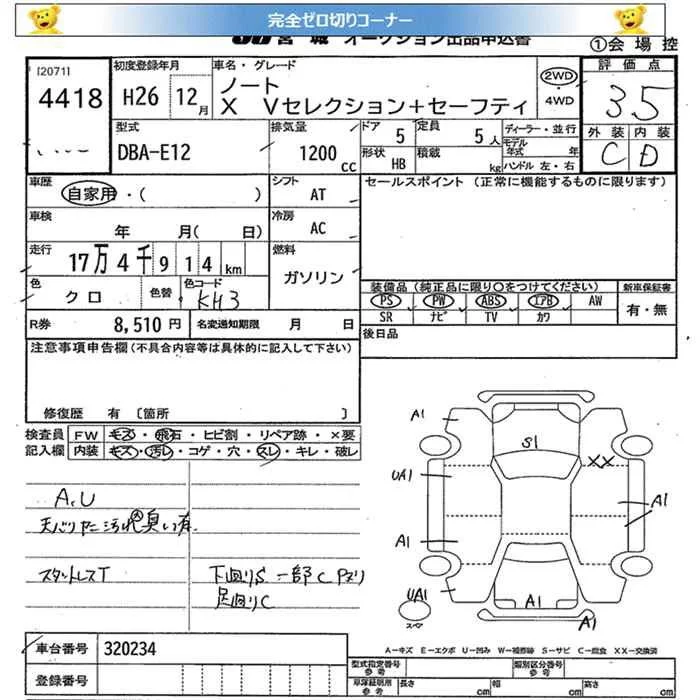 完全ゼロ切りコーナー
宮城 オークション出品申込書
①会場控
[2071]
4418
初度登録年月
H26 12月
車名・グレード
ノート
X Vセレクション+セーフティ
2WD
・
4WD
評価点
3.5
外装 内装
C D
型式
DBA-E12
排気量
1200 cc
ドア 5
定員 5人
形状 HB
積載 kg
ディーラー・並行
モデル年式 年
ハンドル 左・右
車歴
自家用・( )
シフト
AT
セールスポイント (正常に機能するものに限ります)
車検
年 月( 日)
冷房
AC
走行
17万4千914km
燃料
ガソリン
色
クロ
色替
色コード
KH3
装備品(純正品に限り○をつけてください)
新車保証書
PS PW ABS エアB AW
SR ナビ TV カワ
有・無
R券 8,510円
名変通知期限 月 日
後日品
注意事項申告欄(不具合内容等は具体的に記入して下さい)
修復歴 有 [箇所 ]
検査員 FW キズ・飛石・ヒビ割・リペア跡・×要
記入欄 内装 キズ・汚レ・コゲ・穴・スレ・キレ・破レ
A,U
天バリヤニ汚れ 臭い有
スタットレスT
下回りS 一部C
足回りC
A1
S1
XX
UA1
A1
A1
UA1
A1
スペア
車台番号 320234
登録番号
A－キズ E－エクボ U－凹み W－補修跡 S－サビ C－腐食 XX－交換済
型式指定番号 参考
類別区分番号 参考
車庫証明用 参考
長さ cm
幅 cm
高さ cm